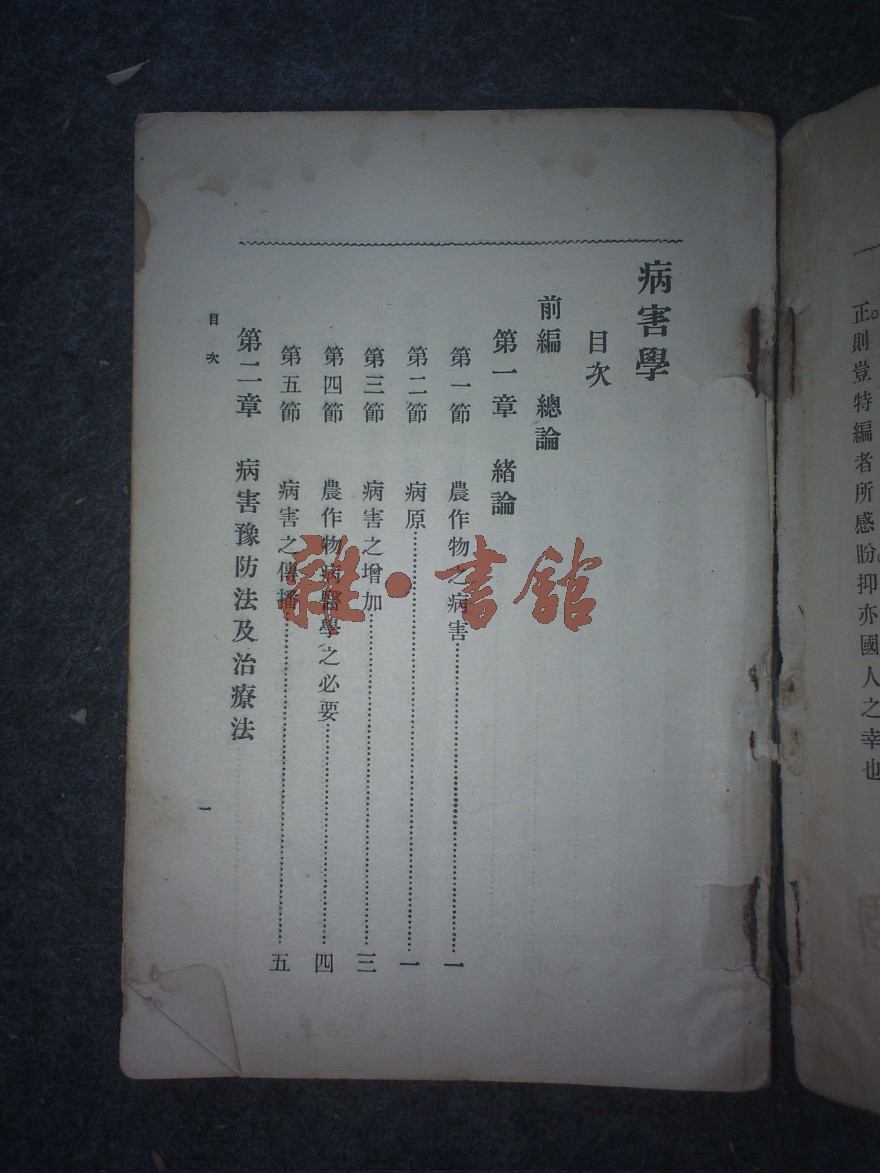 正。則豈特編者所感盼。抑亦國人之幸也
病害學
目次
前編 總論
第一章 緒論
第一節 農作物之病害……一
第二節 病原……一
第三節 病害之增加……三
第四節 農作物病醫學之必要……四
第五節 病害之傳播……五
第二章 病害豫防法及治療法
目次 一
雜·書館